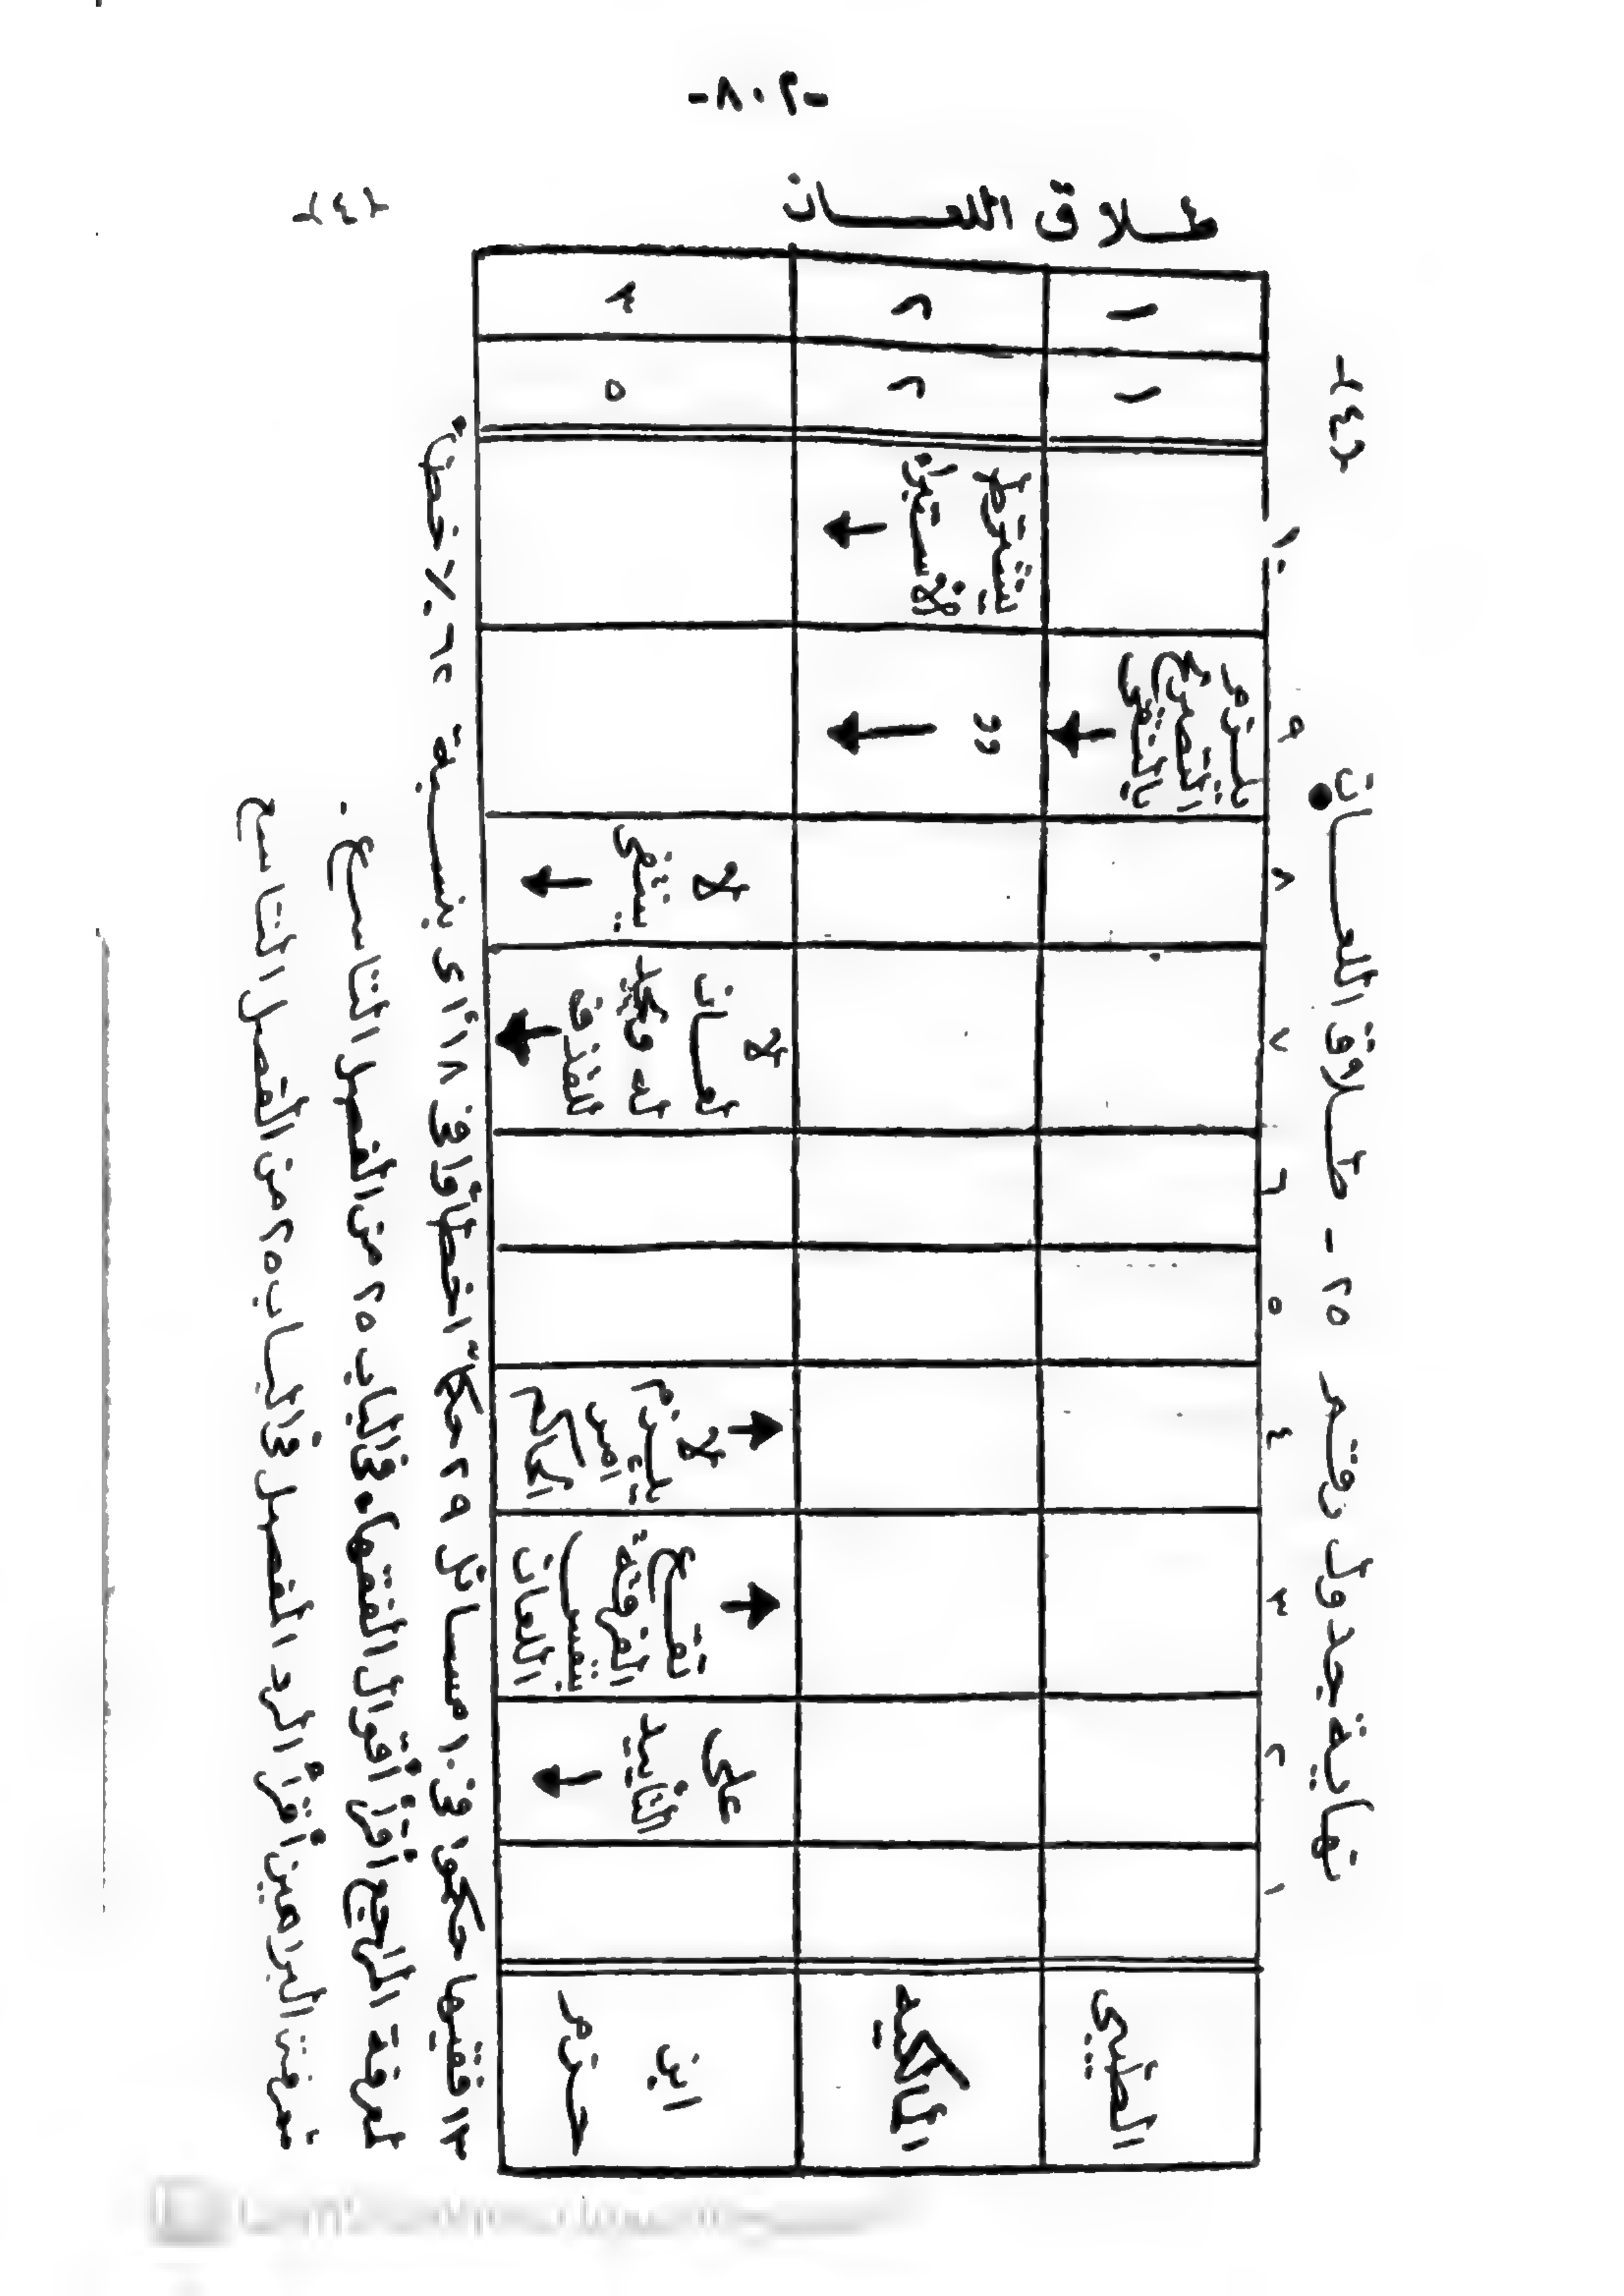 -٢٠٨-
طلاق اللعان
٢٤٢
٢٤٢
نهاية جدول رقم ٢٥ - طلاق اللعان
١ ٢ ٣ ٤ ٥ ٦ ٧ ٨ ٩ ١٠
الطبرى
يلزم
التصريح
بالنفى
١
١
المالكيه
"
يشترط
الاستبراء
٢
٢
ابن
حزم
على
التأبيد
تقع
الفرقة
بنفس
اللعان
لا
يلزم
امر
الحاكم
لا
لعان
له ويحد
للقذف
لا
ينتفى
٥
٣
١٣ فقيها حكموا فى ١٠ مسائل ٢٩ حكما اخطأوا فى ١٨ أى بنسبة ٦٢٪ خطئ
لمعرفة الراجح أقرأ أقوال الفقهاء فى الباب ٢٥ من الفصل التاسع .
معرفت البراهين أقرأ الرد المفصل فى الباب ٢٥ من الفصل التاسع